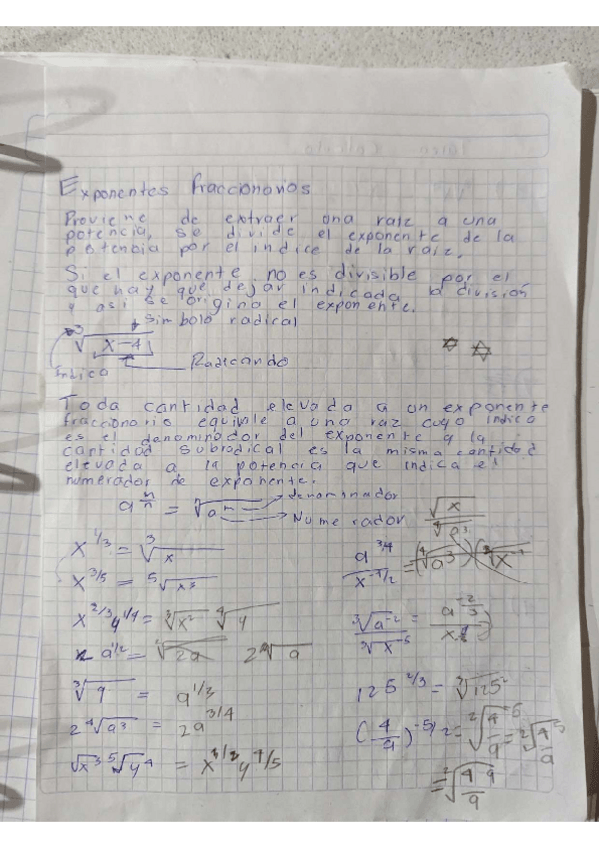 Exponentes fraccionarios
Proviene de extraer una raiz a una
potencia, se divide el exponente de la
potencia por el indice de la raiz.
Si el exponente no es divisible por el
que hay que dejar indicada la división
y asi se origina el exponente.
Simbolo radical
³√x-4
Índica Radicando
Toda cantidad elevada a un exponente
fraccionario equivale a una raiz cuyo indica
es el denominador del exponente y la
cantidad subradical es la misma cantidad
elevada a la potencia que indica el
numerador de exponente.
a^(m/n) = ⁿ√a^m denominador
Numerador
x^(1/3) = ³√x
a^(3/4) / x^(-1/2) =
x^(3/5) = ⁵√x³
x^(2/3) y^(1/4) = ³√x² ⁴√y
³√a^(-2) / √x^(-5) =
a^(1/2) = √2a 2√a
³√9 = a^(1/3)
125^(2/3) = ³√125²
2 ⁴√a³ = 2a^(3/4)
(4/9)^(-5/2) =
√x³ ⁵√y⁴ = x^(3/2) y^(4/5)